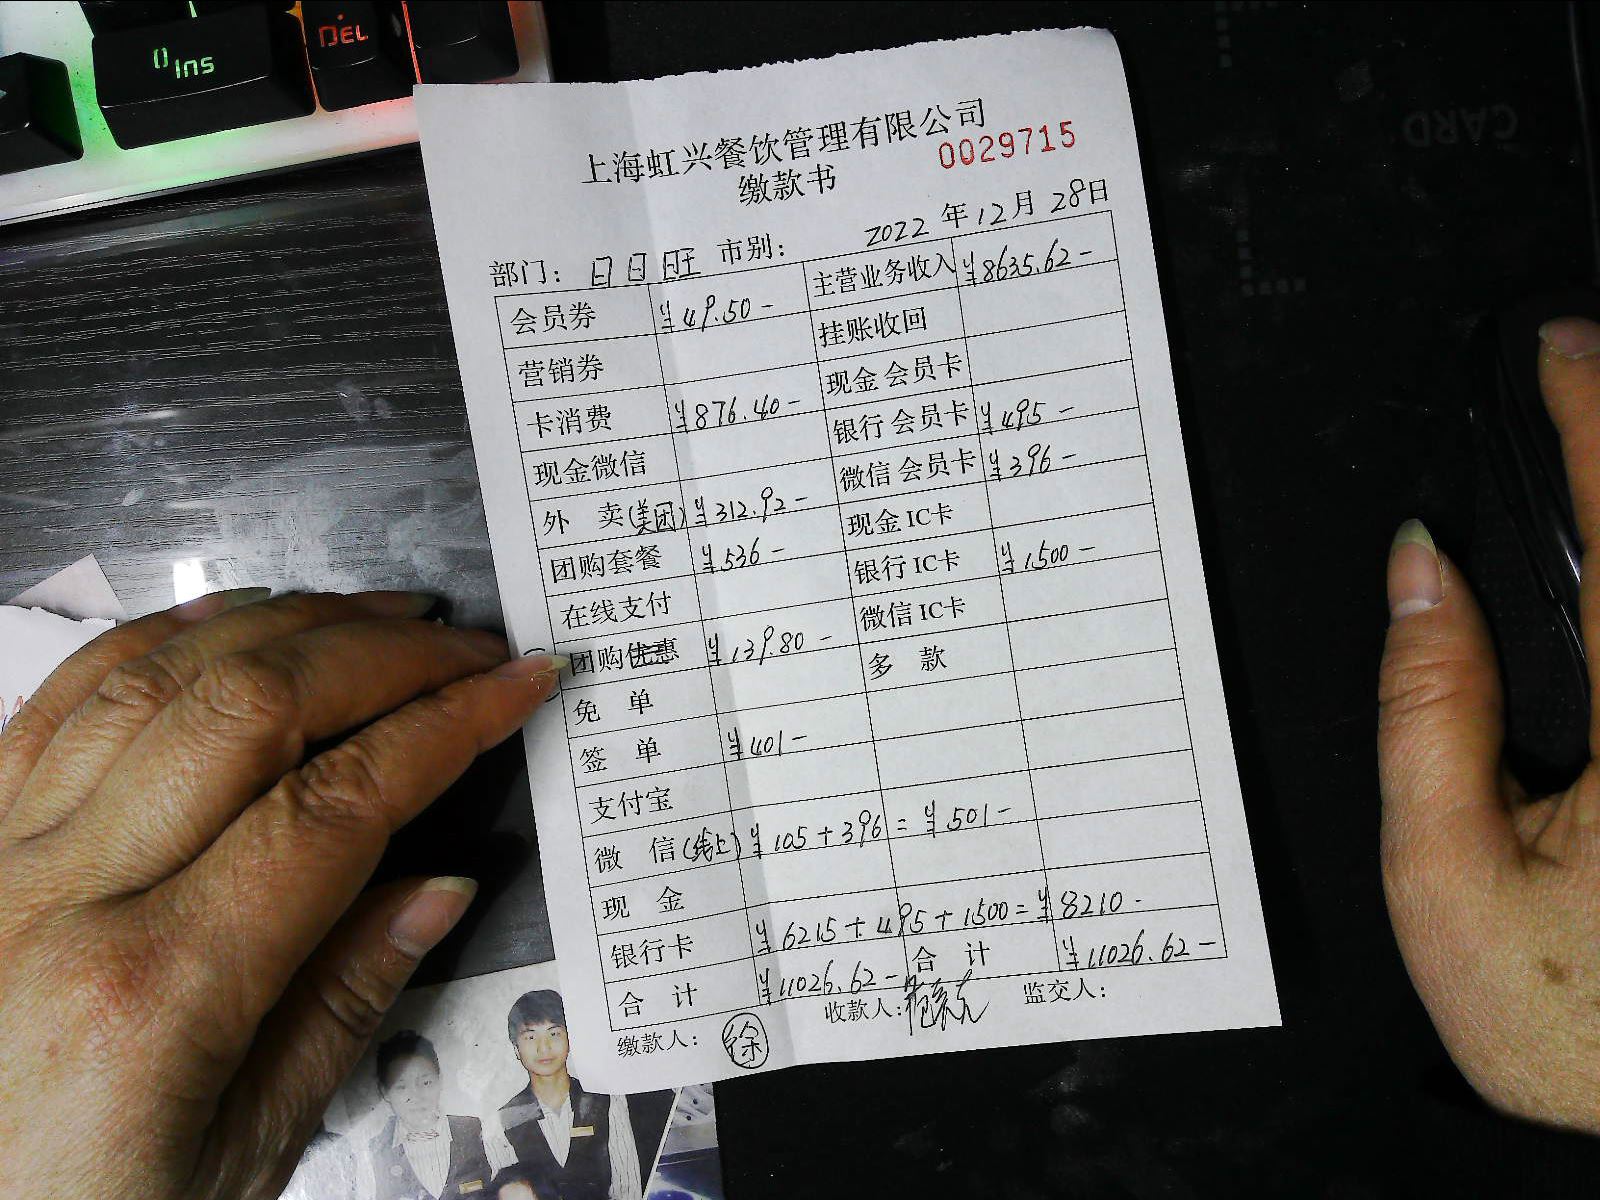 Ins
0
DEL
CARD
上海虹兴餐饮管理有限公司
0029715
缴款书
2022 年 12 月 28 日
部门: 日日旺 市别:
会员券 ¥49.50- 主营业务收入 ¥8635.62-
营销券 挂账收回
卡消费 ¥876.40- 现金会员卡
现金微信 银行会员卡 ¥495-
外 卖(美团) ¥312.92- 微信会员卡 ¥396-
团购套餐 ¥536- 现金IC卡
在线支付 银行IC卡 ¥1500-
团购优惠 ¥139.80- 微信IC卡
免 单 多 款
签 单 ¥401-
支付宝
微 信(线上) ¥105+396 = ¥501-
现 金
银行卡 ¥6215+495+1500=¥8210-
合 计 ¥11026.62- 合 计 ¥11026.62-
缴款人: 徐 收款人: 监交人: